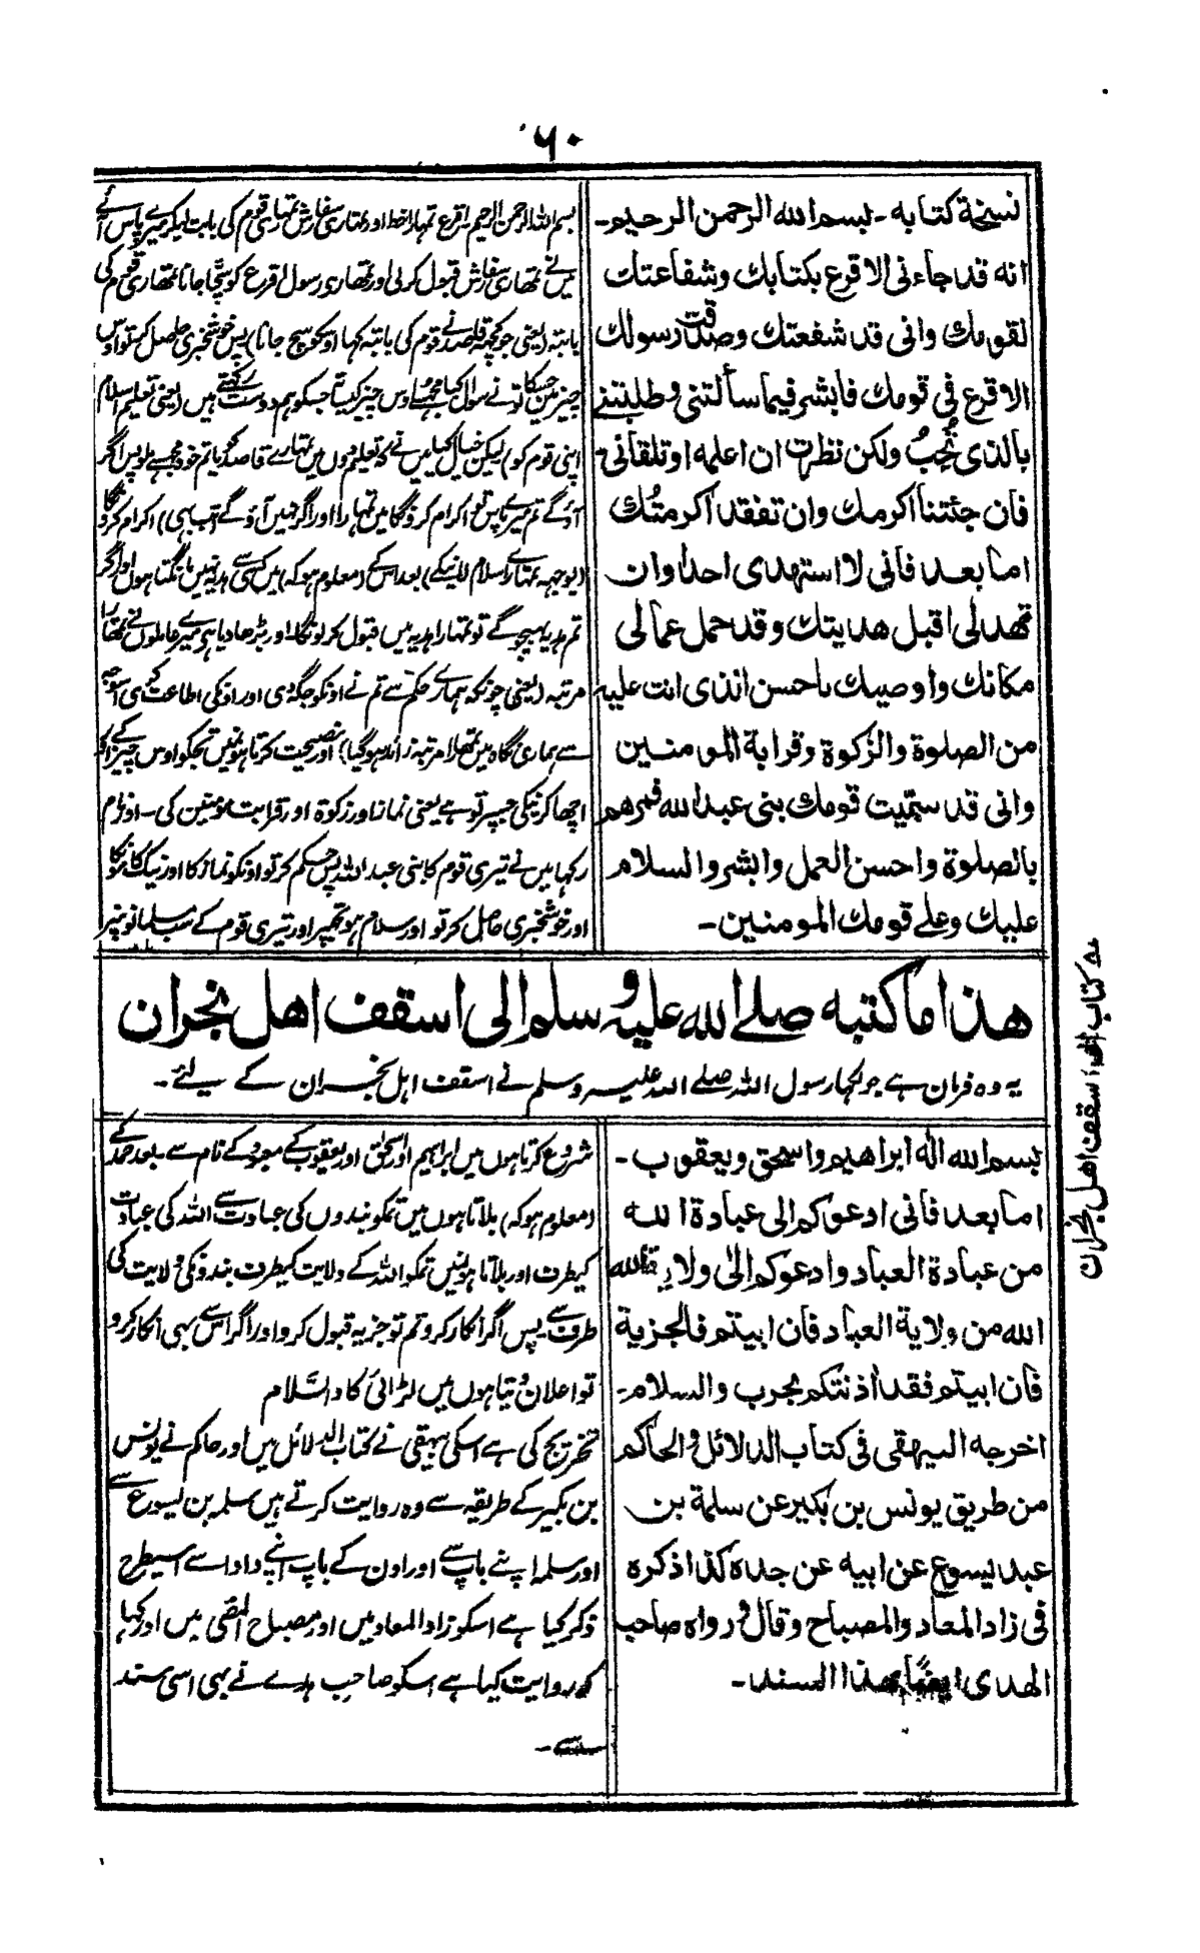 ۶۰
نسخة كتابه - بسم الله الرحمن الرحيم -
انه قد جاءنى الاقرع بكتابك وشفاعتك
لقومك وانى قد شفعتك وصدقت رسولك
الاقرع فى قومك فابشر فيما سألتنى وطلبتنى
بالذى تحب ولكن نظرت ان اعلمه او تلقانى -
فان جئتنا اكرمك وان تفقد اكرمتك
اما بعد فانى لا استهدى احدا وان
تهد لى اقبل هديتك وقد حمل عمالى
مكانك واوصيك باحسن الذى انت عليه
من الصلوة والزكوة وقرابة المومنين
وانى قد سمّيت قومك بنى عبد الله فمرهم
بالصلوة واحسن العمل وابشر والسلام
عليك وعلى قومك المومنين -
بسم الله الرحمن الرحيم اقرع تمہارا خط اور تمہاری سفارش تمہاری قوم کی بابت لیکر میرے پاس آئے
میں نے تمھاری سفارش قبول کرلی اور تمھاری رسول اقرع کو سچا جانا تمھاری قوم کی
بابتہ (یعنی جو کچھ قاصد نے قوم کی بابتہ کہا اوسکو سچ جانا) پس خوشخبری حاصل کر تو اوس
چیز میں جسکا تو نے سوال کیا مجھسے اوس چیز کیساتھ جسکو ہم دوست رکھتے ہیں (یعنی تعلیم اسلام
اپنی قوم کو) لیکن خیال کیا میں نے کہ تعلیم دوں میں تمہارے قاصد کو یا تم خود مجھسے ملو پس اگر
آؤ گے تم میرے پاس تو اکرام کرونگا میں تمہارا اور اگر نہیں آؤ گے (تب بہی) اکرام کرونگا
(بوجہہ تمہارے اسلام لانیکے) بعد اس کے (معلوم ہو کہ) میں کسی سے ہدیہ نہیں مانگتا ہوں اور اگر
تم ہدیہ بہیجو گے تو تمہارا ہدیہ میں قبول کرلونگا اور بڑھا دیا ہی میرے عاملوں نے تمھارا
مرتبہ (یعنی چونکہ ہمارے حکم سے تم نے اونکو جگہ دی اور اونکی اطاعت کی اسوجہ
سے ہماری نگاہ میں تمھارا مرتبہ زائد ہوگیا) اور نصیحت کرتا ہوں میں تجھکو اوس چیز کے
اچھا کرنیکی جسپر تو ہے یعنی نماز اور زکوۃ اور قرابت مومنین کی - اور نام
رکہا میں نے تیری قوم کا بنی عبد اللہ پس حکم کر تو اونکو نماز کا اور نیک کام کا
اور خوشخبری حاصل کر تو اور سلام ہو تجھپر اور تیری قوم کے سب مسلمانوں پر
هذا ما كتبه صلى الله عليه وسلم الى اسقف اهل نجران
یہ وہ فرمان ہے جو لکہا رسول اللہ صلے اللہ علیہ وسلم نے اسقف اہل نجران کے لئے۔
ے كتاب الى اسقف اهل نجران
بسم الله اله ابراهيم واسحق ويعقوب -
اما بعد فانى ادعوكم الى عبادة الله
من عبادة العباد وادعوكم الى ولاية الله
الله من ولاية العباد فان ابيتم فالجزية
فان ابيتم فقد اذنتكم بحرب والسلام -
اخرجه البيهقى فى كتاب الدلائل والحاكم
من طريق يونس بن بكير عن سلمة بن
عبد يسوع عن ابيه عن جده كذا ذكره
فى زاد المعاد والمصباح وقال ورواه صاحب
الهدى ايضًا بهذا السند -
شروع کرتا ہوں میں ابراہیم اور اسحٰق اور یعقوب کے معبود کے نام سے بعد حمد کے
(معلوم ہو کہ) بلاتا ہوں میں تمکو بندوں کی عبادت سے اللہ کی عبادت
کیطرف اور بلاتا ہوں میں تمکو اللہ کے ولایت کیطرف بندونکی ولایت کی
طرف سے پس اگر انکار کرو تم تو جزیہ قبول کرو اور اگر اس سے بہی انکار کرو
تو اعلان دیتا ہوں میں لڑائی کا والسّلام
تخریج کی ہے اسکی بیہقی نے کتاب الدلائل میں اور حاکم نے یونس
بن بکیر کے طریقہ سے وہ روایت کرتے ہیں سلمہ بن یسوع سے
اور سلمہ اپنے باپ سے اور اون کے باپ اپنے دادا سے اسیطرح
ذکر کیا ہے اسکو زاد المعاد میں اور مصباح المضئی میں اور کہا
کہ روایت کیا ہے اسکو صاحب ہدے نے بہی اسی سند
سے -